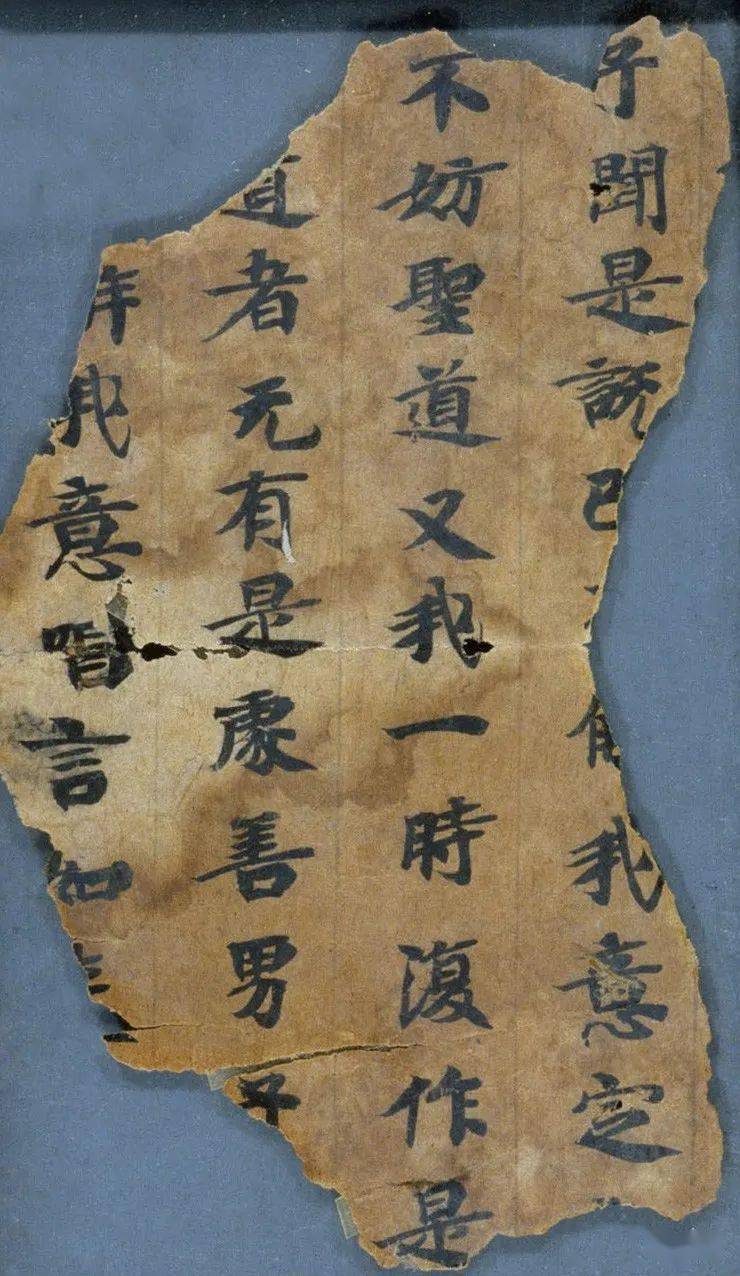 子聞是說已解我意定
不妨聖道又我一時復作是
道者无有是處善男子
解我意唱言如